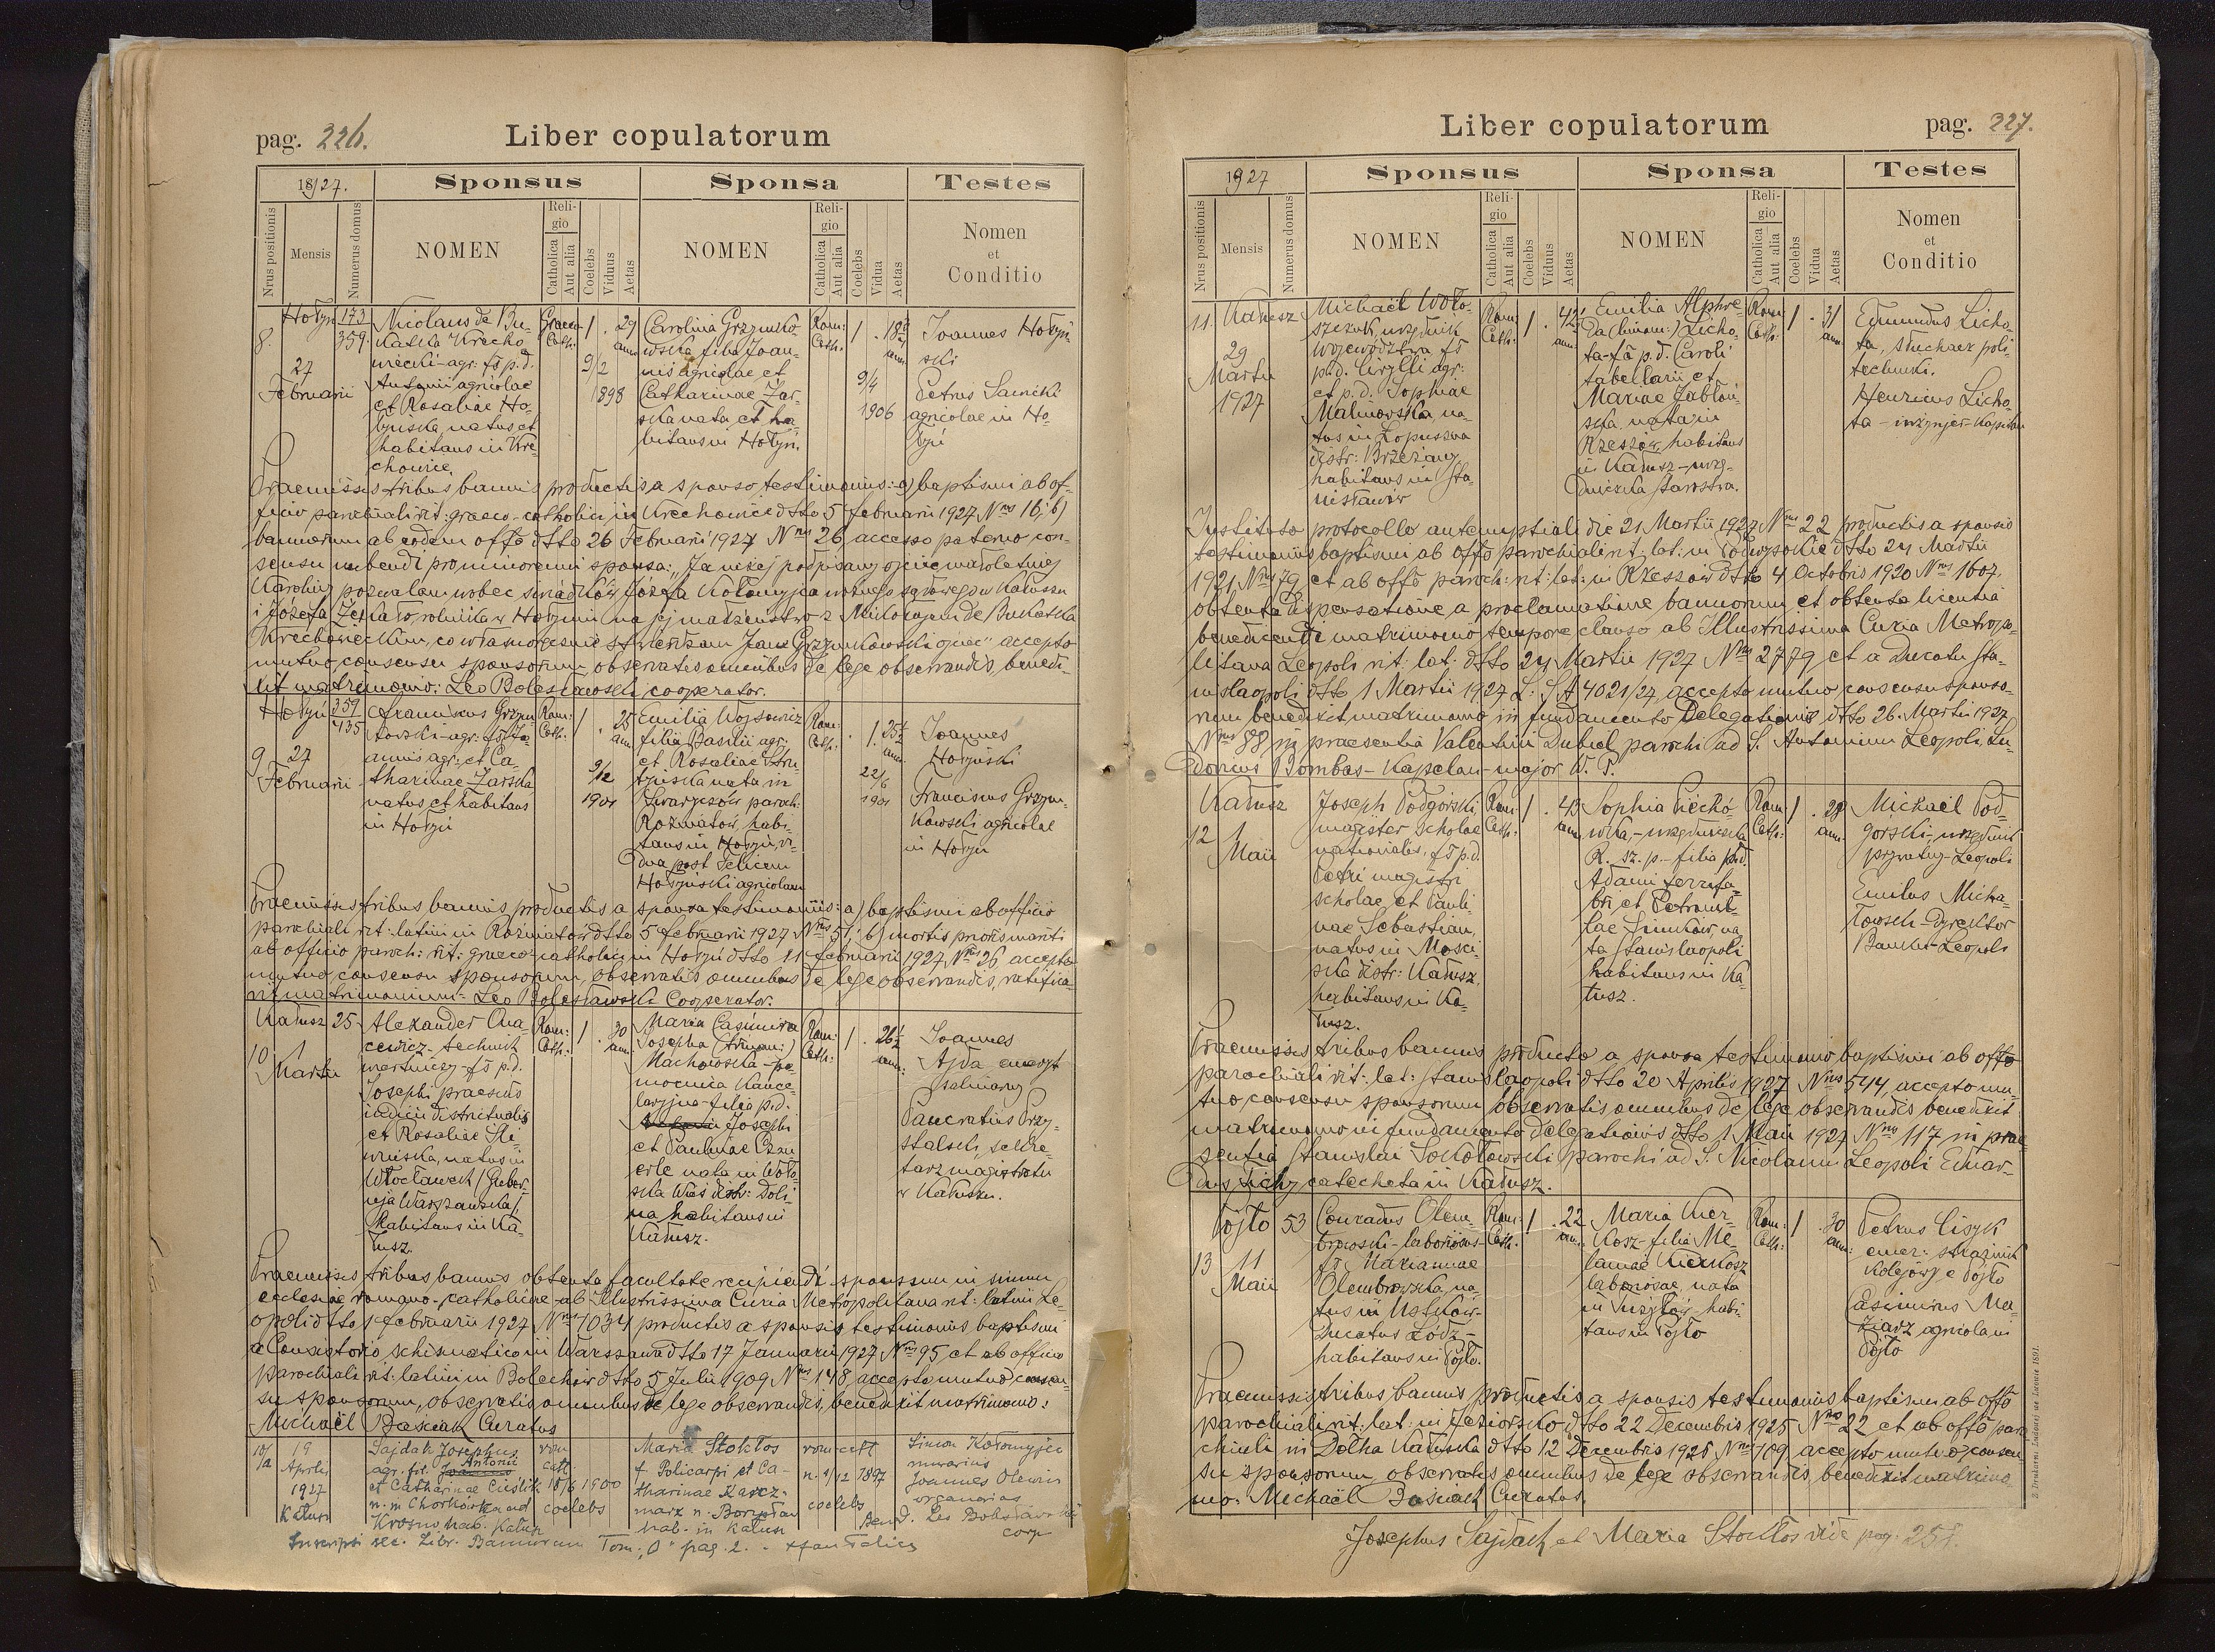 pag. 226.
Liber copulatorum
1927.
Sponsus
Sponsa
Testes
Nrus positionis
Mensis
Numerus domus
NOMEN
Religio
Catholica
Aut alia
Coelebs
Viduus
Aetas
NOMEN
Religio
Catholica
Aut alia
Coelebs
Vidua
Aetas
Nomen
et
Conditio
8.
Hołyń
27
Februarii
173
359.
Nicolaus de Bu-
katka Krecho-
wiecki-agr: fs p.d.
Antonii agricolae
et Rosaliae Ho-
łyńska natus et
habitans in Kre-
chowice.
Graeco
Cath:
1
29
ann
9/2
1898
Carolina Grzymko-
wska filia Joan-
nis agricolae et
Catharinae Żar-
ska nata et ha-
bitans in Hołyń.
Rom:
Cath:
1
9/4
1906
Joannes Hołyń-
ski
Petrus Sawicki
agricolae in Ho-
łyń
Praemissis tribus bannis productis a sponso testimoniis: a) baptismi ab of-
ficio parochiali rit: graeco-catholici in Krechowice dtto 5 februarii 1927 Nrus 16; b)
bannorum ab eodem offo dtto 26 Februarii 1927 Nrus 26 accesso paterno con-
sensu nubendi pro minorenni sponsa: „Ja niżej podpisany ojciec małoletniej
Karoliny pozwalam wobec świadków Józefa Kołomyjca woźnego sądowego w Kałuszu
i Józefa rolnika w Hołyniu na jej małżeństwo z Mikołajem de Bukatka
Krechowieckim, co własnoręcznie stwierdzam Jan Grzymkowski ojciec" accepto
mutuo consensu sponsorum observatis omnibus de lege observandis, benedi-
xit matrimonio: Leo Bolesławski cooperator.
Hołyń
9
27
Februarii
359
435
Franciscus Grzym-
kowski-agr: fs Jo-
annis agr: et Ca-
tharinae Żarska
natus et habitans
in Hołyń
Rom:
Cath:
1
25
ann
9/12
1901
Emilia Wojsowicz
filia Basilii agr:
et Rosaliae
nata in
Swaryczów paroch:
Rożniatów, habi-
tans in Hołyń, vi-
dua post Felicem
Hołyński agricolam
Rom:
Cath:
1.
25½
ann
22/6
1901
Joannes
Hołyński
Franciscus Grzym-
kowski agricolae
in Hołyń
Praemissis tribus bannis productis a sponsa testimoniis: a) baptismi ab officio
parochiali rit: latini in Rożniatów dtto 5 februarii 1927 Nrus 51; b) mortis prioris mariti
ab officio paroch: rit: graeco-catholici in Hołyń dtto 11 februarii 1927 Nrus 26 accepto
mutuo consensu sponsorum, observatis omnibus de lege observandis, ratifica-
vit matrimonium: Leo Bolesławski Cooperator.
Kałusz
10
1
Martii
25
Alexander
technik
fs p.d.
Josephi praesidis
iudicii districtualis
et Rosaliae Śli-
wińska, natus in
Włocławek/Guber-
nja Warszawska/
habitans in Ka-
łusz.
Rom:
Cath:
1
30
ann:
Maria Casimira
Josepha (trinom:)
Machowska-po-
mocnica kance-
laryjna-filia p.d.
Josephi
et Paulinae
nata in Woło-
ska Wieś distr: Doli-
na habitans in
Kałusz.
Rom:
Cath:
1
26½
ann:
Joannes
Ajda emeryt
salinarny
Pancratius Przy-
stalski, sekre-
tarz magistratu
w Kałuszu.
Praemissis tribus bannis obtenta facultate recipiendi sponsum in sinum
ecclesiae romano-catholicae ab Illustrissima Curia Metropolitana rit: latini Le-
opoli dtto 1 februarii 1927 Nrus 1034 productis a sponsis testimoniis baptismi
a Consistorio schismatico in Warszawa dtto 17 Januarii 1927 Nrus 95 et ab officio
parochiali rit: latini in Bolechów dtto 5 Julii 1909 Nrus 148, accepto mutuo consen-
su sponsorum, observatis omnibus de lege observandis, benedixit matrimonio:
Michaël Basiak Curatus
10/a
19
Aprilis
1927
Kałusz
Sajdak Josephus
agr. fil. Antonii
et Catharinae Cieślik
n. in Chorkówka ad
Krosno hab. Kałusz
rom
cath
18/6 1900
coelebs
Maria Stokłos
f. Policarpi et Ca-
tharinae Karcz-
marz n. Borysław
hab. in Kałusz
rom cath
n. 2/12 1897
coelebs
Simon Kołomyjec
murarius
Joannes Olewin
organarius
Bened. Leo Bolesławski
coop
Inscripsi sec. Libr. Bannorum Tom. „O" pag. 2.
pag. 227.
Liber copulatorum
1927
Sponsus
Sponsa
Testes
Nrus positionis
Mensis
Numerus domus
NOMEN
Religio
Catholica
Aut alia
Coelebs
Viduus
Aetas
NOMEN
Religio
Catholica
Aut alia
Coelebs
Vidua
Aetas
Nomen
et
Conditio
11.
Kałusz
29
Martii
1927
Michaël Woło-
szczuk, urzędnik
województwa fs
p.d. Cirylli agr:
et p.d. Sophiae
Malinowska, na-
tus in Łopuszna
distr: Brzeżany
habitans in Sta-
nisławów
Rom:
Cath:
1
42
ann:
Emilia Alphre-
da (binom:) Licho-
ta-fa p.d. Caroli
tabellarii et
Mariae Jabłoń-
ska, nata in
Rzeszów, habitans
in Kałusz-urzę-
dniczka starostwa.
Rom:
Cath:
1
31
ann
Edmundus Licho-
ta, słuchacz poli-
techniki.
Henricus Licho-
ta-inżynjer-kapitan
Instituto protocollo antenuptiali die 21 Martii 1927 Nrus 22 productis a sponsis
testimoniis baptismi ab offo parochiali rit: lat: in Podwysokie dtto 24 Martii
1921 Nrus 79 et ab offo paroch: rit: lat: in Rzeszów dtto 4 Octobris 1920 Nrus 1607.
obtenta dispensatione a proclamatione bannorum, et obtenta licentia
benedicendi matrimonio tempore clauso ab Illustrissima Curia Metropo-
litana Leopoli rit: lat: dtto 24 Martii 1927 Nrus 2779 et a Ducatu Sta-
nislaopoli dtto 1 Martii 1927 L: SA 4021/27, accepto mutuo consensu sponso-
rum benedixit matrimonio in fundamento Delegationis dtto 26. Martii 1927
Nrus 88 in praesentia Valentini Dubiel parochi ad S. Antonium Leopoli, Lu-
dovicus Bombas-Kapelan-major W. P.
Kałusz
12
1
Maii
Joseph Podgórski,
magister scholae
nationalis, fs p.d.
Petri magistri
scholae et Pauli-
nae Sebastian,
natus in Mości-
ska distr: Kałusz,
habitans in Ka-
łusz.
Rom:
Cath:
1
43
ann
Sophia Piecho-
wka,-urzędniczka
R. sz. p.-filia p.d.
Adami ferrifa-
bri et Petronel-
lae na-
ta Stanislaopoli
habitans in Ka-
łusz.
Rom:
Cath:
1
28
ann:
Michaël Pod-
górski-urzędnik
prywatny-Leopoli
Emilus Micha-
łowski-dyrektor
Banku-Leopoli
Praemissis tribus bannis producto a sponsa testimonio baptismi ab offo
parochiali rit: lat: Stanislaopoli dtto 20 Aprilis 1927 Nrus 544, accepto mu-
tuo consensu sponsorum observatis omnibus de lege observandis benedixit
matrimonio in fundamento delegationis dtto 1 Maii 1927 Nrus 117 in prae-
sentia Stanislai Sokołowski parochi ad S. Nicolaum Leopoli Eduar-
dus Tichy catecheta in Kałusz.
Pójło
13
11
Maii
53
Conradus Olem-
browski-laboriosus-
fs Mariannae
Olembrowska, na-
tus in Ustków-
Ducatus Łódź-
habitans in Pójło.
Rom:
Cath:
1
22
ann.
Maria Kier-
kosz-filia Me-
laniae Kierkosz
laboriosae, nata
in habi-
tans in Pójło
Rom:
Cath:
1
30
ann:
Petrus Ciszk
emer: strażnik
kolejowy e Pójło
Casimirus Ma-
ziarz agricola in
Pójło
Praemissis tribus bannis productis a sponsis testimoniis baptismi ab offo
parochiali rit: lat: in Jeziorsko dtto 22 Decembris 1925 Nrus 22 et ab offo paro-
chiali in Dołha Kałuska dtto 12 Decembris 1925 Nrus 709, accepto mutuo consen-
su sponsorum observatis omnibus de lege observandis, benedixit matrimo-
nio: Michaël Basiak Curatus.
Z Drukarni Ludowej we Lwowie 1891.
Josephus Sajdak et Maria Stokłos vide pag. 257.